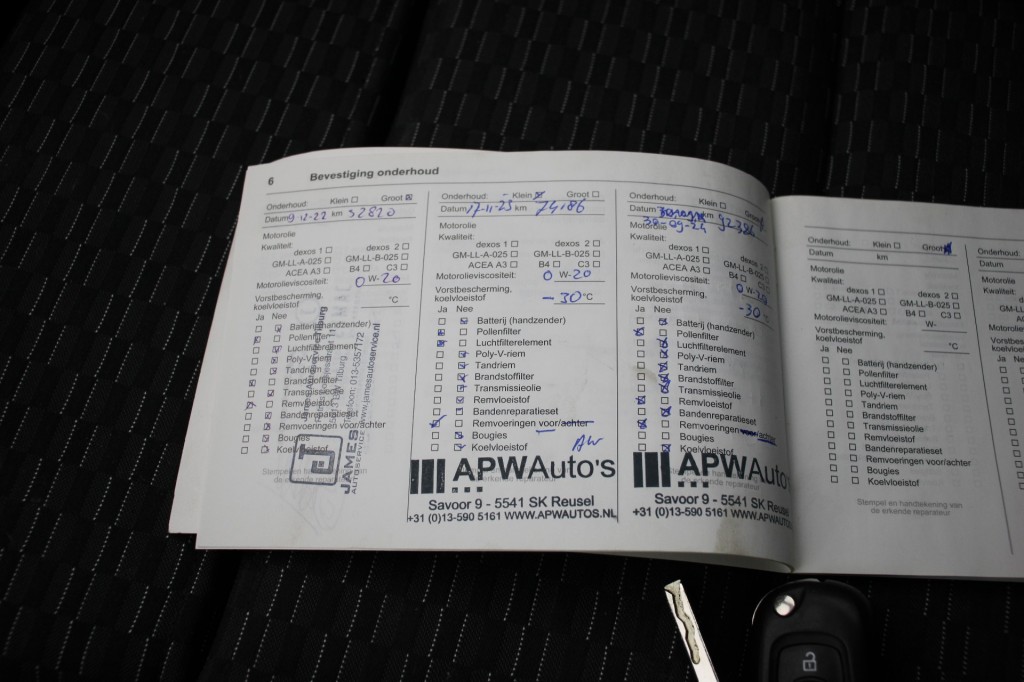 6 Bevestiging onderhoud
Onderhoud: Klein ☐ Groot ☒
Datum 9-12-22 km 52820
Motorolie
Kwaliteit:
dexos 1 ☐ dexos 2 ☐
GM-LL-A-025 ☐ GM-LL-B-025 ☐
ACEA A3 ☐ B4 ☐ C3 ☐
Motorolieviscositeit: 0 W-20
Vorstbescherming,
koelvloeistof °C
Ja Nee
Batterij (handzender)
Pollenfilter
Luchtfilterelement
Poly-V-riem
Tandriem
Brandstoffilter
Transmissieolie
Remvloeistof
Bandenreparatieset
Remvoeringen voor/achter
Bougies
Koelvloeistof
JAMES
AUTOSERVICE
Telefoon: 013-5357172
www.jamesautoservice.nl
Onderhoud: Klein ☒ Groot ☐
Datum 17-11-23 km 74186
Motorolie
Kwaliteit:
dexos 1 ☐ dexos 2 ☐
GM-LL-A-025 ☐ GM-LL-B-025 ☐
ACEA A3 ☐ B4 ☐ C3 ☐
Motorolieviscositeit: 0 W-20
Vorstbescherming,
koelvloeistof -30 °C
Ja Nee
Batterij (handzender)
Pollenfilter
Luchtfilterelement
Poly-V-riem
Tandriem
Brandstoffilter
Transmissieolie
Remvloeistof
Bandenreparatieset
Remvoeringen voor/achter
Bougies
Koelvloeistof
AW
APWAuto's
Savoor 9 - 5541 SK Reusel
+31 (0)13-590 5161 WWW.APWAUTOS.NL
Onderhoud: Klein ☐ Groot
Datum km 92384
30-09-24
Motorolie
Kwaliteit:
dexos 1 ☐ dexos 2
GM-LL-A-025 ☐ GM-LL-B-025
ACEA A3 ☐ B4 ☐ C3 ☐
Motorolieviscositeit: 0 W-
Vorstbescherming,
koelvloeistof -30
Ja Nee
Batterij (handzender)
Pollenfilter
Luchtfilterelement
Poly-V-riem
Tandriem
Brandstoffilter
Transmissieolie
Remvloeistof
Bandenreparatieset
Remvoeringen voor/achter
Bougies
Koelvloeistof
APWAuto's
Savoor 9 - 5541 SK Reusel
+31 (0)13-590 5161 WWW.APWAUTOS
Onderhoud: Klein ☐ Groot ☒
Datum km
Motorolie
Kwaliteit:
dexos 1 ☐ dexos 2 ☐
GM-LL-A-025 ☐ GM-LL-B-025 ☐
ACEA A3 ☐ B4 ☐ C3 ☐
Motorolieviscositeit: W-
Vorstbescherming,
koelvloeistof °C
Ja Nee
☐ ☐ Batterij (handzender)
☐ ☐ Pollenfilter
☐ ☐ Luchtfilterelement
☐ ☐ Poly-V-riem
☐ ☐ Tandriem
☐ ☐ Brandstoffilter
☐ ☐ Transmissieolie
☐ ☐ Remvloeistof
☐ ☐ Remvoeringen voor/achter
☐ ☐ Bougies
☐ ☐ Koelvloeistof
Stempel en handtekening van
de erkende reparateur